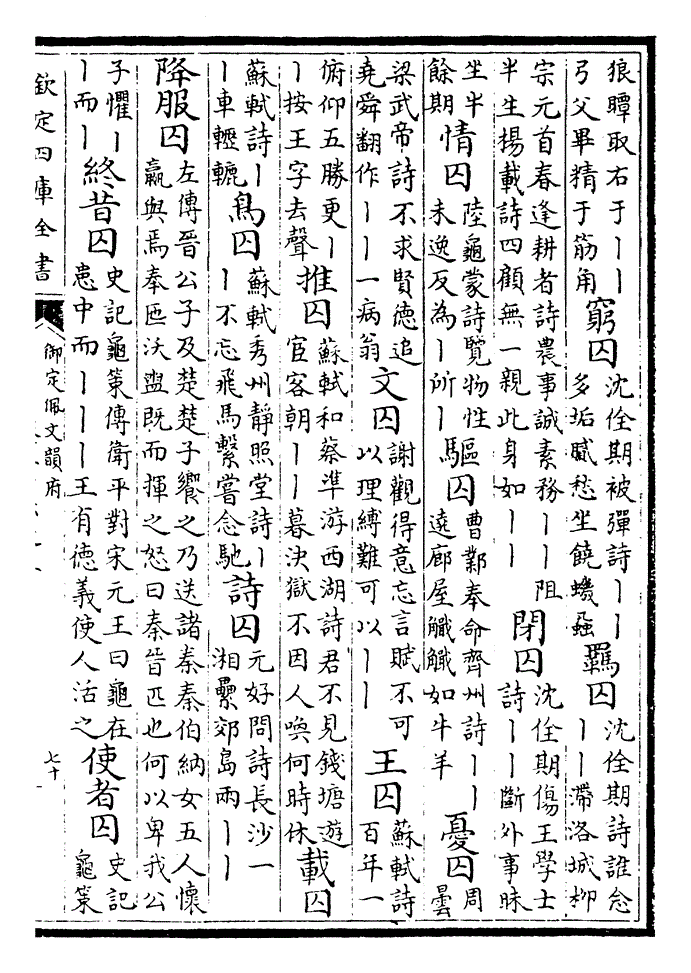 狼瞫取右于丨丨
弓父畢精于筋角
窮囚
沈佺期被彈詩丨丨
多垢膩愁坐饒蟣蝨
羈囚
沈佺期詩誰念
丨丨滯洛城柳
宗元首春逢耕者詩農事誠素務丨丨阻
半生楊載詩四顧無一親此身如丨丨
閉囚
沈佺期傷王學士
詩丨丨斷外事昧
坐半
餘期
情囚
陸龜蒙詩覽物性
未逸反為丨所丨
驅囚
曹鄴奉命齊州詩丨丨
遠廊屋觿觿如牛羊
憂囚
周
曇
梁武帝詩不求賢德追
堯舜翻作丨丨一病翁
文囚
謝觀得意忘言賦不可
以理縛難可以丨丨
王囚
蘇軾詩
百年一
俯仰五勝更丨
丨按王字去聲
推囚
蘇軾和蔡準游西湖詩君不見錢塘遊
宦客朝丨丨暮決獄不因人喚何時休
載囚
蘇軾詩丨
丨車轣轆
鳥囚
蘇軾秀州靜照堂詩丨
丨不忘飛馬繫嘗念馳
詩囚
元好問詩長沙一
湘纍郊島兩丨丨
降服囚
左傳晉公子及楚楚子饗之乃送諸秦秦伯納女五人懷
嬴與焉奉匜沃盥既而揮之怒曰秦晉匹也何以卑我公
子懼丨
丨而丨
終昔囚
史記龜策傳衛平對宋元王曰龜在
患中而丨丨丨王有德義使人活之
使者囚
史記
龜策
欽定四庫全書
御定佩文韻府
七十